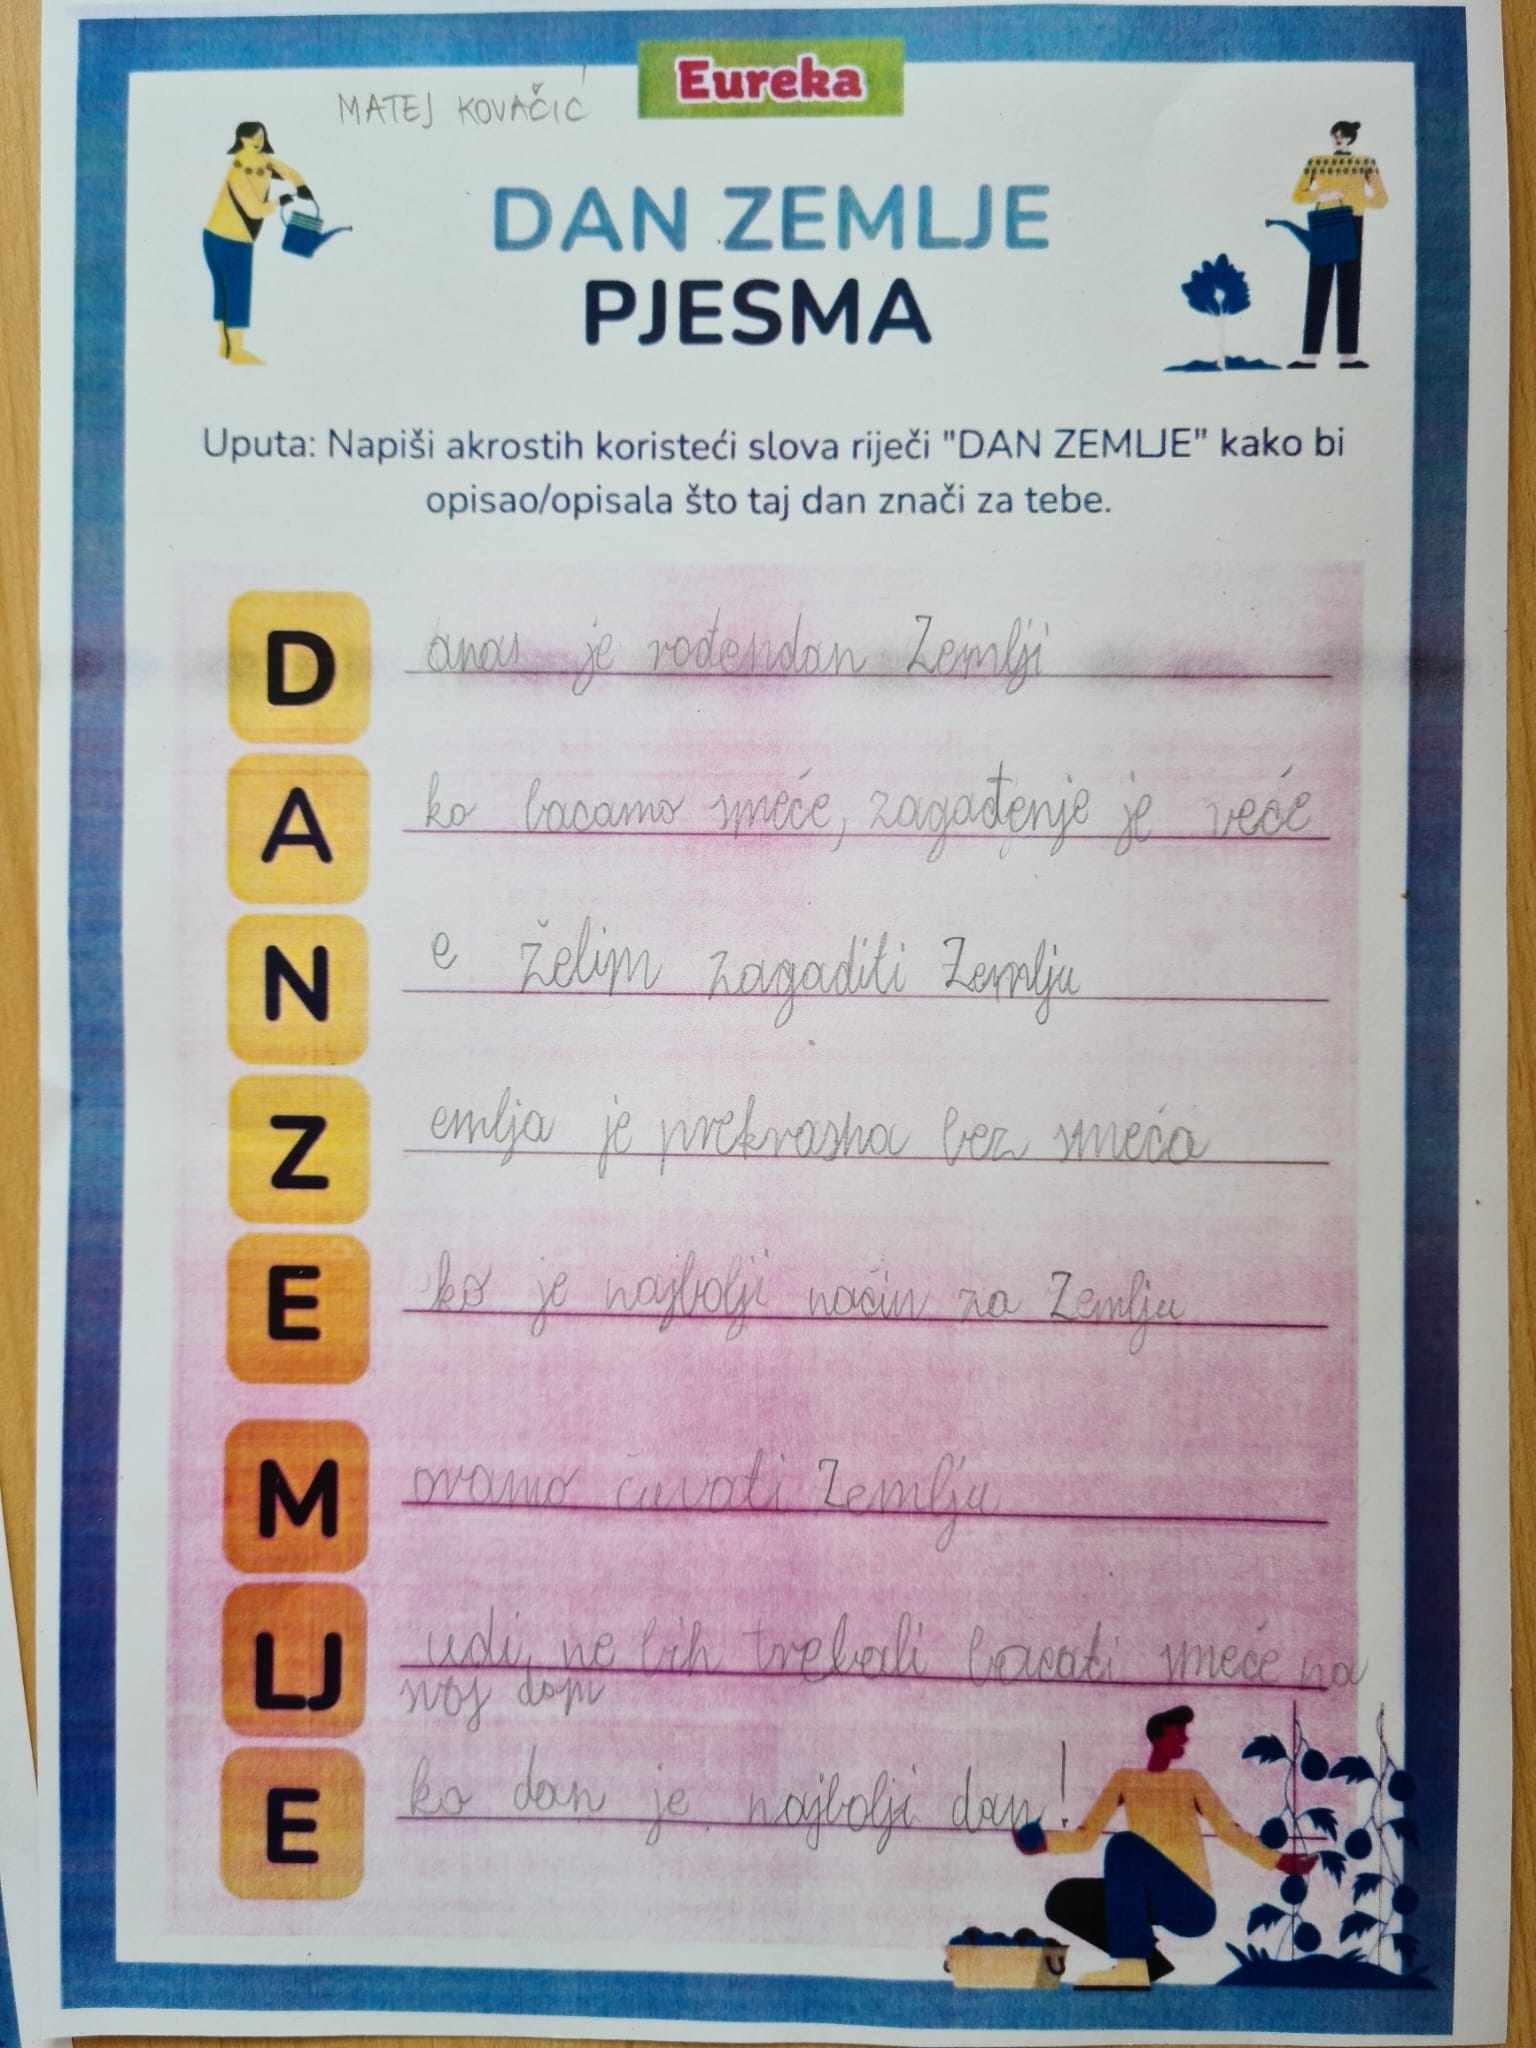 Eureka
MATEJ KOVAČIĆ
DAN ZEMLJE
PJESMA
Uputa: Napiši akrostih koristeći slova riječi "DAN ZEMLJE" kako bi
opisao/opisala što taj dan znači za tebe.
D anas je rođendan Zemlji
A ko bacamo smeće, zagađenje je veće
N e želim zagaditi Zemlju
Z emlja je prekrasna bez smeća
E ko je najbolji način za Zemlju
M oramo čuvati Zemlju
LJ udi, ne bih trebali bacati smeće na
svoj dom
E ko dan je najbolji dan!